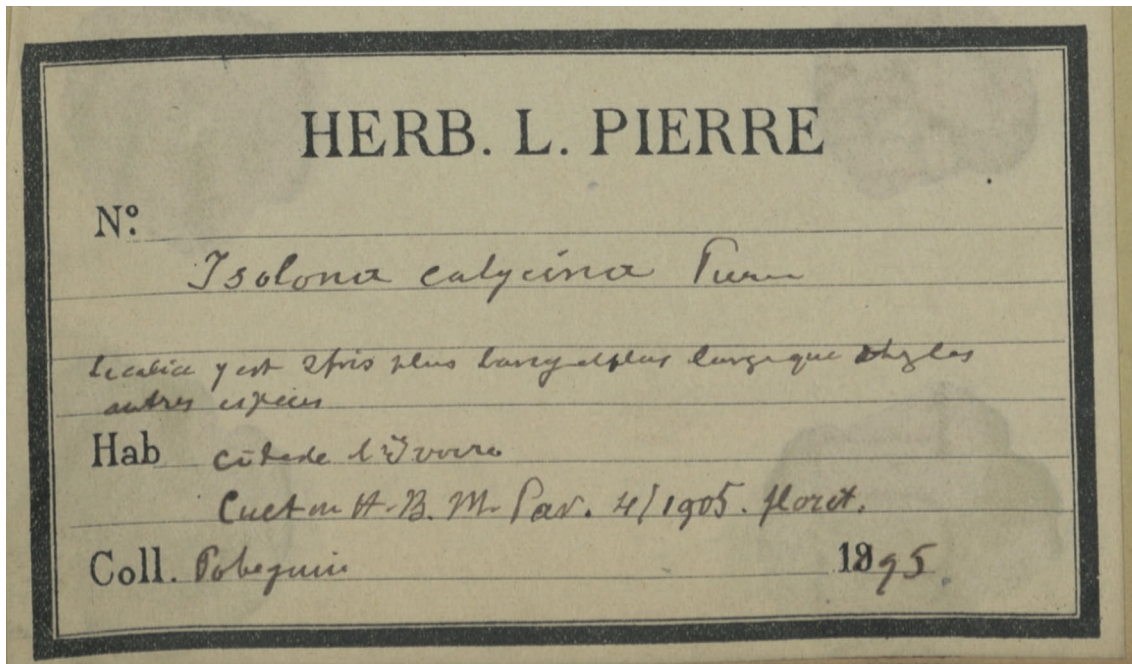 HERB. L. PIERRE
No:
Isolona calycina Pierre
le calice y est 2 fois plus long et plus large que chez les
autres espèces
Hab Côte de l'Ivoire
Cult in H. B. M. Par. 4/1905. floret.
Coll. Pobeguin 1895.